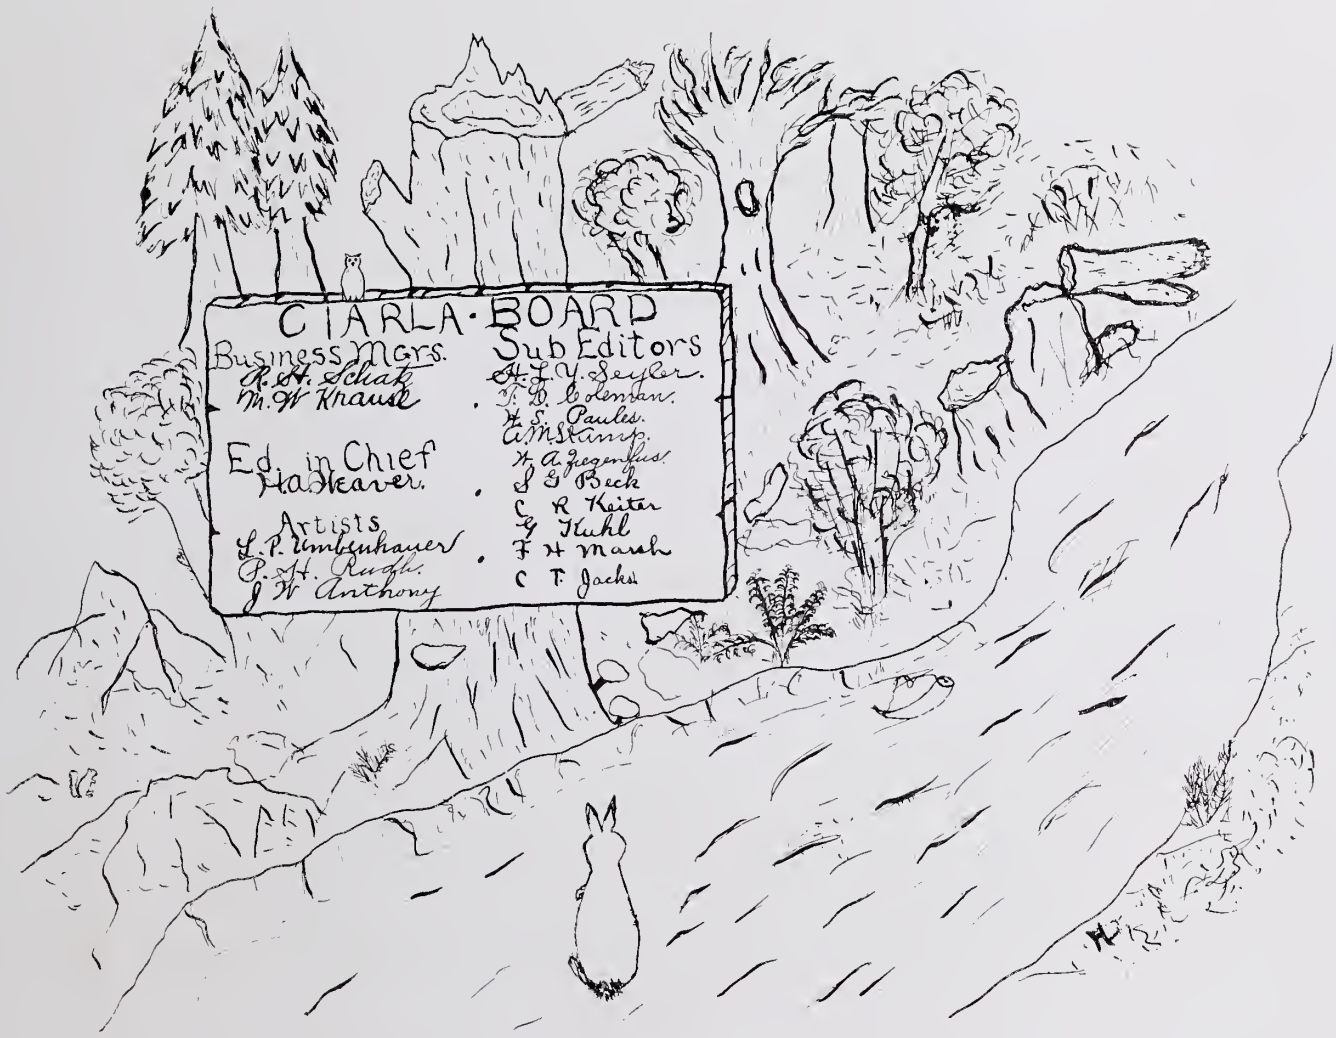 CIARLA·BOARD
Business Mgrs.
R. H. Schatz
M. W Krause
Ed. in Chief
H a Weaver.
Artists
L. P. Umbenhauer
P. H. Rudh.
J W Anthony
Sub Editors
H. L. Y. Seyler.
T. B. Coleman.
H S. Paules.
A M Stamp.
H. A. Ziegenfus.
S G Beck
C R Keiter
G Kuhl
F H Marsh
C T. Jacks.